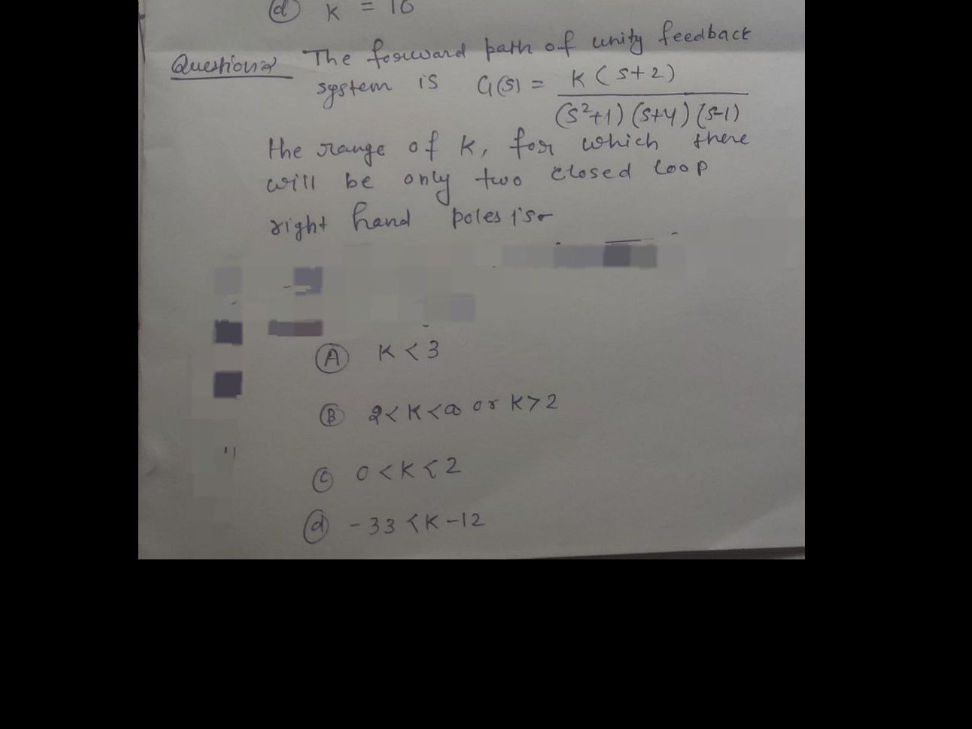 (d) K = 16
Question 2 The forward path of unity feedback
system is G(s) = K(s+2)
(s²+1)(s+4)(s-1)
the range of K, for which there
will be only two closed loop
right hand poles is:-
(A) K < 3
(B) 2 < K < ∞ or K > 2
(C) 0 < K < 2
(d) -33 < K -12